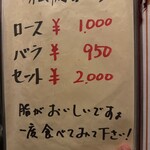 ロース ¥ 1,000
バラ ¥ 950
セット ¥ 2,000
脂がおいしいですよ
一度食べてみて下さい!